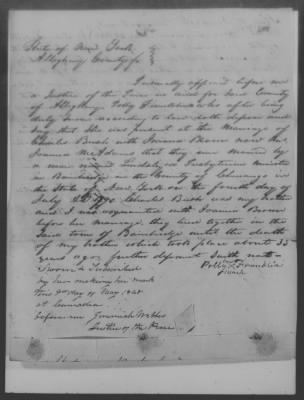 State of New York
Allegheny County ss
Personally appeared before me
a Justice of the Peace in and for said County
of Allegheny Polly Franklin who after being
duly sworn according to law doth depose and
say that She was present at the Marriage of
Charles Bush with Joanna Brown now
Joanna McAdams that they were married by
a man named a Presbyterian Minister
in Bainbridge in the County of Chenango in
the State of New York on the fourth day of
July 1790 Charles Bush was my brother
and I was acquainted with Joanna Brown
before her Marriage they lived together in the
Said town of Bainbridge until the death
of my brother which took place about 35
years ago further deponent saith not
Sworn & Subscribed
Polly Franklin
mark
by her making her mark
this day of May 1848
at
before me Jeremiah
Justice of the Peace